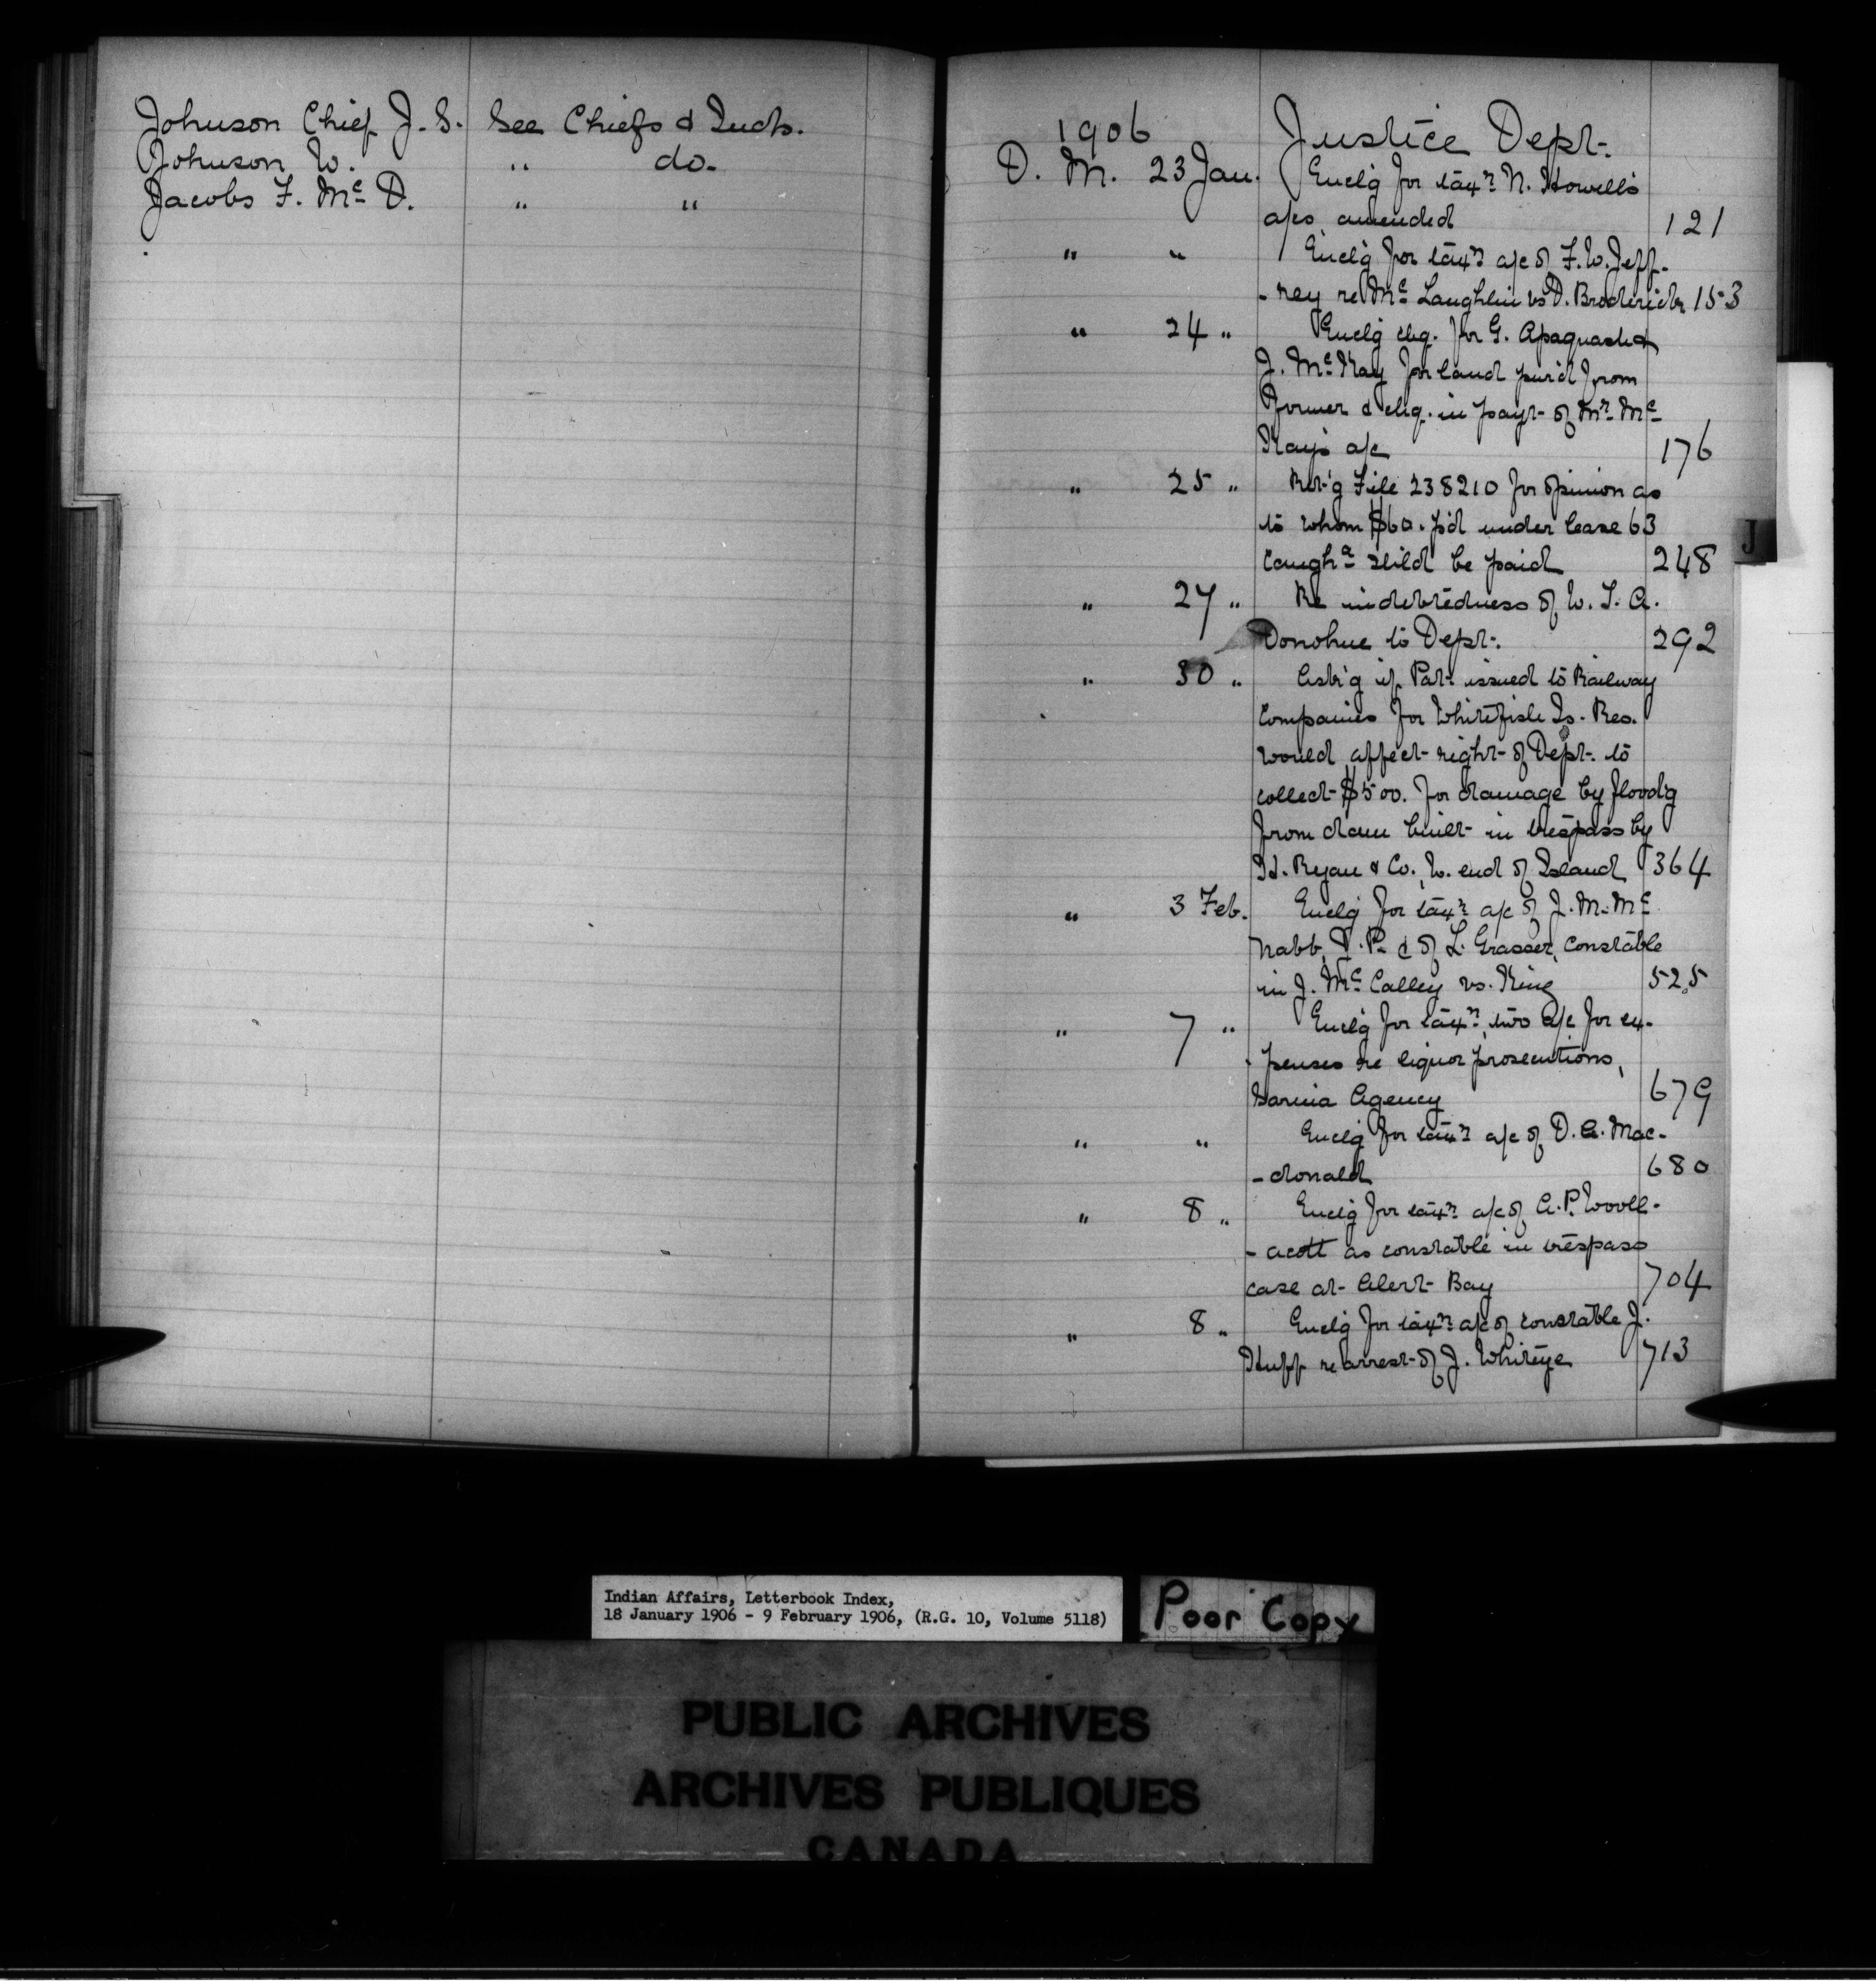 Johnson Chief J. S. See Chiefs & Inds.
Johnson W. " do.
Jacobs F. Mc D. " "
1906 Justice Dept.
D. M. 23 Jan. Encl'g for tax'n N. Howell's
a/cs amended 121
" " Encl'g for tax'n a/c of F. W. Jeff-
-rey re Mc Laughlin vs D. Broderick 153
" 24 " Encl'g chq. for G. Apaquash &
J. Mc Kay for land pur'd from
former & chq. in payt. of Mr. Mc
Kay's a/c 176
" 25 " Ret'g File 238210 for opinion as
to whom $60. p'd under lease 63
Caugh'a sh'ld be paid 248
" 27 " Re indebtedness of W. J. A.
Donohue to Dept. 292
" 30 " Ask'g if Pat. issued to Railway
Companies for Whitefish Is. Res.
would affect right of Dept. to
collect $500. for damage by flood'g
from dam built in trespass by
H. Ryan & Co., W. end of Island 364
" 3 Feb. Encl'g for tax'n a/c of J. M. Mc
Nabb, J. P. & of L. Grasser, Constable
in J. Mc Calley vs. King 525
" 7 " Encl'g for tax'n, two a/c for ex-
-penses re liquor prosecutions,
Sarnia Agency 679
" " Encl'g for tax'n a/c of D. A. Mac-
-donald 680
" 8 " Encl'g for tax'n a/c of A. P. Wooll-
-acott as constable in trespass
case at Alert Bay 704
" 8 " Encl'g for tax'n a/c of constable J.
Huff re arrest of J. Whiteye 713
J
Indian Affairs, Letterbook Index,
18 January 1906 - 9 February 1906, (R.G. 10, Volume 5118)
Poor Copy
PUBLIC ARCHIVES
ARCHIVES PUBLIQUES
CANADA